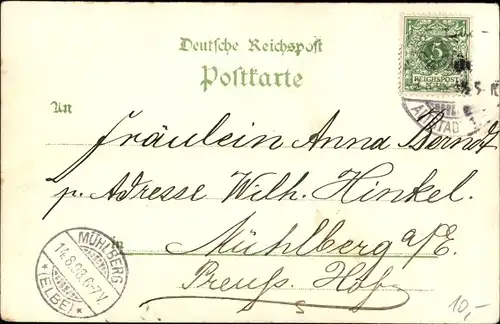 Deutsche Reichspost
Postkarte
5
REICHSPOST
An
Fräulein Anna
p. Adresse Wilh. Hinkel.
in
Mühlberg a/E.
Preuß. Hof
MÜHLBERG
14.8.98.6-7V.
*(ELBE)*
10,-